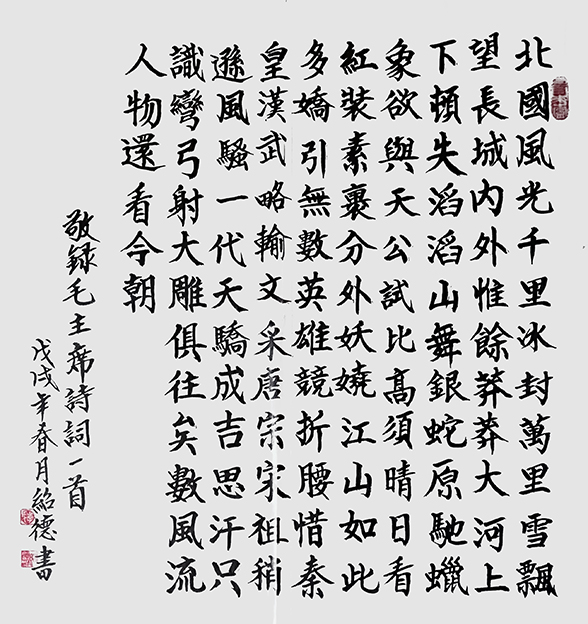 北國風光千里冰封萬里雪飄
望長城内外惟餘莽莽大河上
下頓失滔滔山舞銀蛇原馳蠟
象欲與天公試比高須晴日看
紅裝素裹分外妖嬈江山如此
多嬌引無數英雄競折腰惜秦
皇漢武略輸文采唐宗宋祖稍
遜風騷一代天驕成吉思汗只
識彎弓射大雕俱往矣數風流
人物還看今朝
敬録毛主席詩詞一首
戊戌年春月紹德書